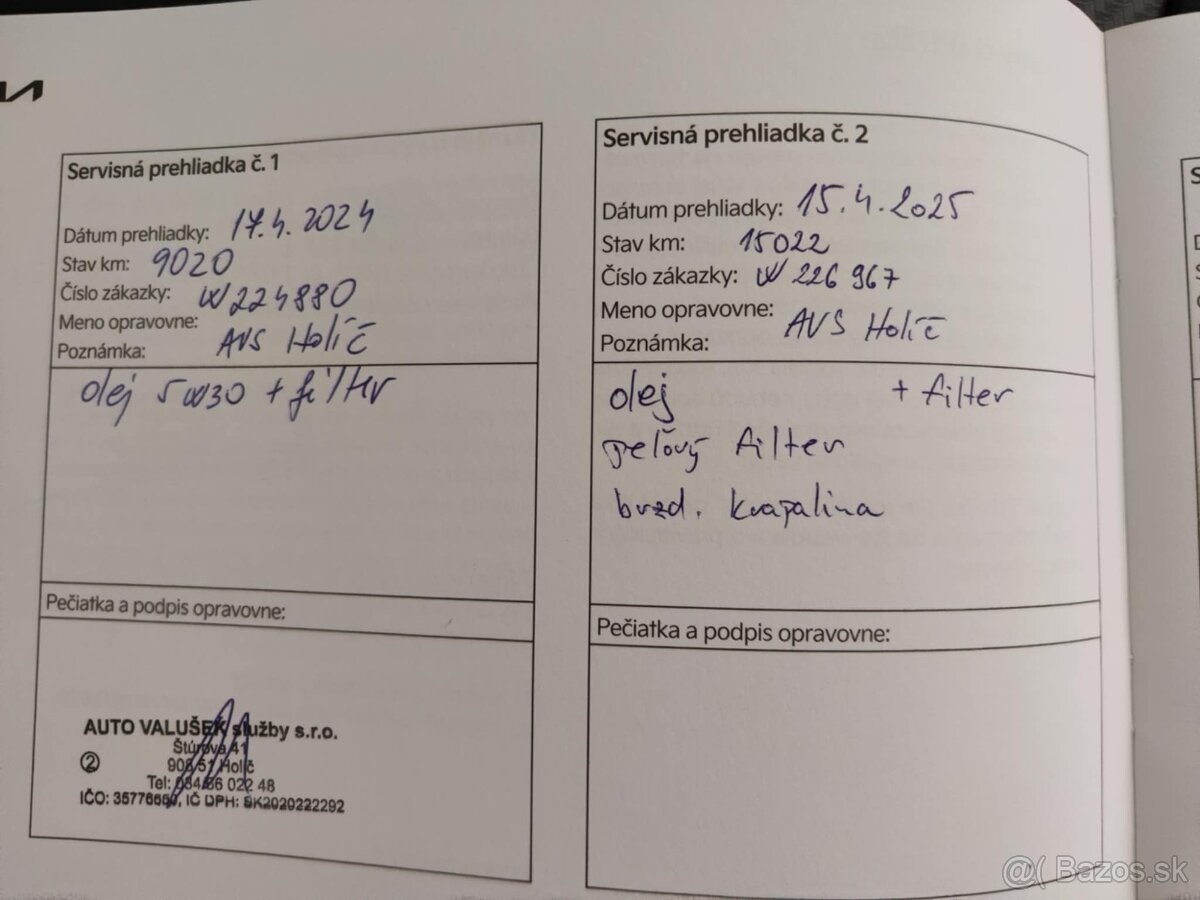 Servisná prehliadka č. 1
Dátum prehliadky: 17.4.2024
Stav km: 9020
Číslo zákazky: W224880
Meno opravovne: AVS Holíč
Poznámka:
olej 5W30 + filter
Pečiatka a podpis opravovne:
AUTO VALUŠEK služby s.r.o.
Štúrova 41
2
908 51 Holíč
Tel: 034/66 022 48
IČO: IČ DPH: SK2020222292
Servisná prehliadka č. 2
Dátum prehliadky: 15.4.2025
Stav km: 15022
Číslo zákazky: W 226 967
Meno opravovne: AVS Holíč
Poznámka:
olej + filter
peľový filter
brzd. kvapalina
Pečiatka a podpis opravovne:
@( Bazos.sk